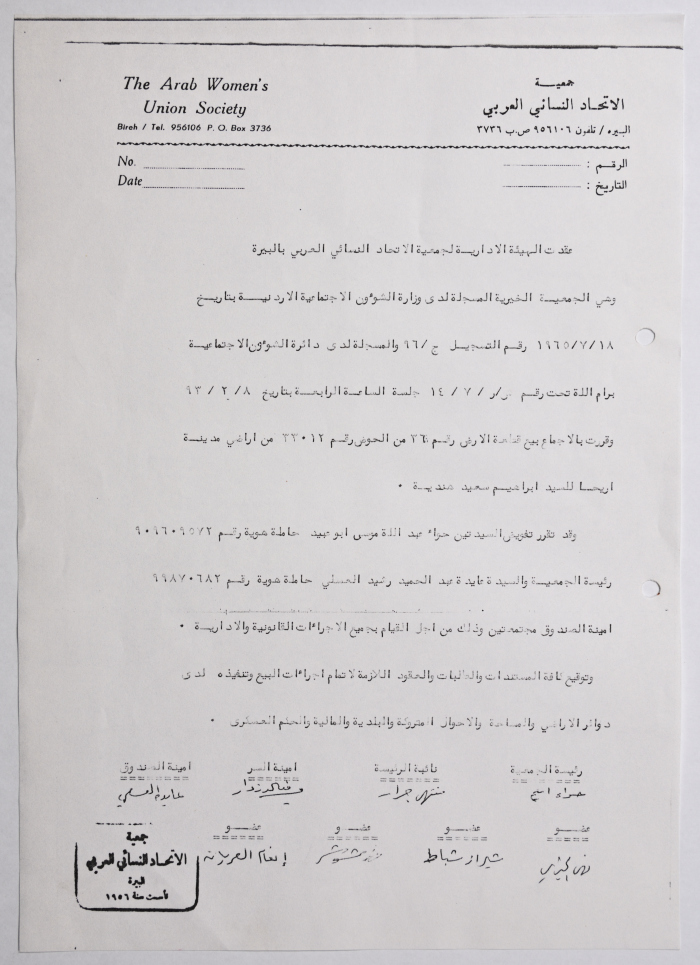 The Arab Women's
Union Society
Bireh / Tel. 956106 P. O. Box 3736
جمعيــة
الاتحـاد النسـائي العربي
البيره / تلفون ٩٥٦١٠٦ ص.ب ٣٧٣٦
No.
Date
الرقـم :
التاريخ :
عقدت الهيئة الاداريـة لجمعية الاتحاد النسائي العربي بالبيرة
وهي الجمعيـة الخيرية المسجلة لدى وزارة الشوؤون الاجتماعية الاردنيـة بتاريـخ
١٩٦٥/٧/١٨ رقم التسجيـل ج/٩٦ والمسجلة لدى دائرة الشوؤون الاجتماعيـة
برام اللة تحت رقم ر/ ٧ / ١٤ جلسة الساعة الرابعـة بتاريخ ٨ / ٢ / ٩٣
وقررت بالاجماع بيع قطعـة الارض رقـم ٣٦ من الحوض رقـم ٣٣٠١٢ من اراضي مدينـة
اريحـا للسيد ابراهيـم سعيد هنديـة ٠
وقد تقرر تفويض السيدتين حواء عبد اللة موسى ابو عبيد حاملة هوية رقـم ٩٠٩٦٠٩٥٧٢
رئيسة الجمعيـة والسيدة عايدة عبد الحميد رشيد العسلي حاملة هوية رقـم ٩٩٨٧٠٦٨٢
امينة الصندوق مجتمعتين وذلك من اجل القيام بجميع الاجراءات القانونية والاداريـة ٠
وتوقيع كافة المستندات والطلبات والعقود اللازمة لاتمام اجراءات البيع وتنفيذه لدى
دوائر الاراضي والمساحة والاحوال المتروكة والبلدية والمالية والحكم العسكرى ٠
رئيسة الجمعية
نائبة الرئيسة
امينة السر
امينة الصندوق
منتهى جرار
عايدة العسلي
عضـو
عضـو
عضـو
عضـو
شيراز شباط
إنعام
جمعية
الاتحاد النسائي العربي
البيرة
تأسست سنة ١٩٥٦